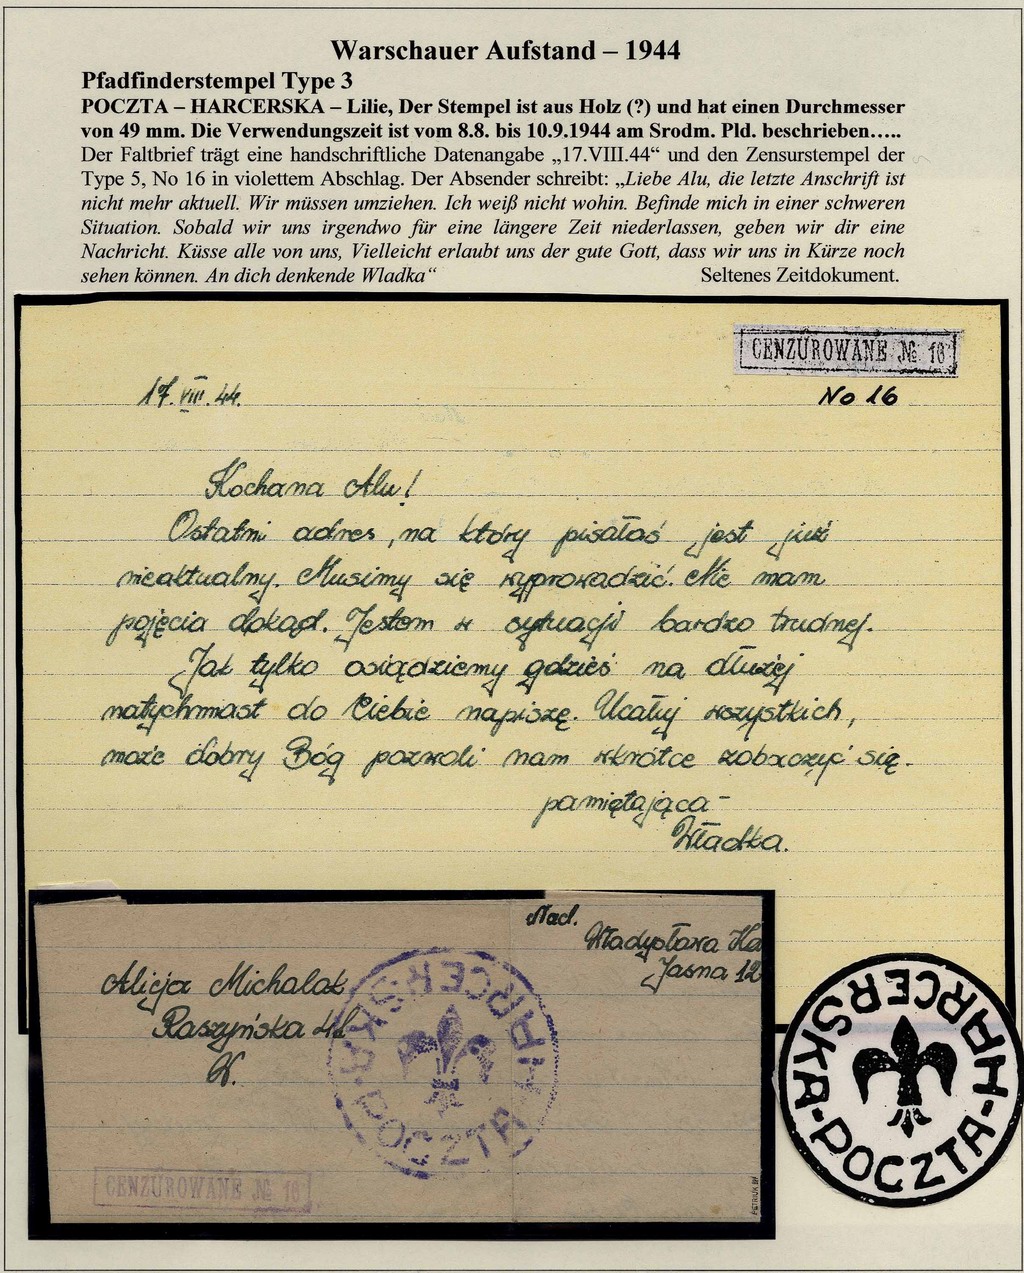 Warschauer Aufstand – 1944
Pfadfinderstempel Type 3
POCZTA – HARCERSKA – Lilie, Der Stempel ist aus Holz (?) und hat einen Durchmesser
von 49 mm. Die Verwendungszeit ist vom 8.8. bis 10.9.1944 am Srodm. Pld. beschrieben…..
Der Faltbrief trägt eine handschriftliche Datenangabe „17.VIII.44“ und den Zensurstempel der
Type 5, No 16 in violettem Abschlag. Der Absender schreibt: „Liebe Alu, die letzte Anschrift ist
nicht mehr aktuell. Wir müssen umziehen. Ich weiß nicht wohin. Befinde mich in einer schweren
Situation. Sobald wir uns irgendwo für eine längere Zeit niederlassen, geben wir dir eine
Nachricht. Küsse alle von uns, Vielleicht erlaubt uns der gute Gott, dass wir uns in Kürze noch
sehen können. An dich denkende Wladka“ Seltenes Zeitdokument.
CENZUROWANE № 16
17.VIII.44. No 16
Kochana Alu!
Ostatni adres, na który pisałaś jest już
nieaktualny. Musimy się wyprowadzić. Nie mam
pojęcia dokąd. Jestem w sytuacji bardzo trudnej.
Jak tylko osiądziemy gdzieś na dłużej
natychmast do Ciebie napiszę. Ucałuj wszystkich,
może dobry Bóg pozwoli nam wkrótce zobaczyć się.
pamiętająca –
Władka.
Nad.
Władysława Ka
Jasna 12
Alicja Michalak
Raszyńska
W.
HARCERSKA · POCZTA
CENZUROWANE № 16
PETRIUK BPP
HARCERSKA - POCZTA -